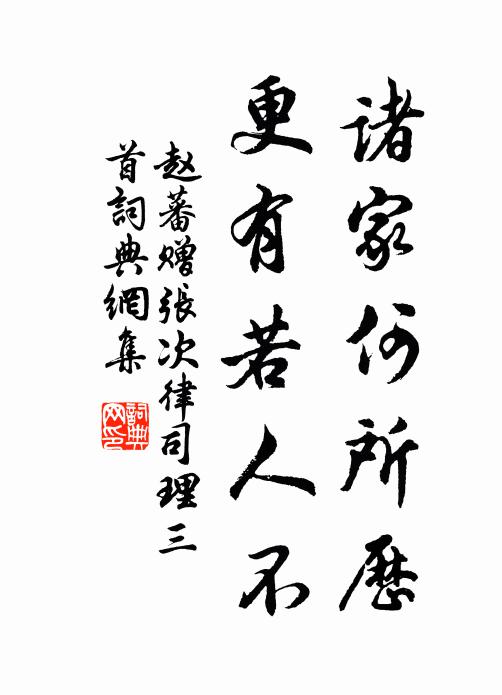 诸家何所历
更有若人不
赵蕃赠張次律司理三
首詞典網集
詞典网印